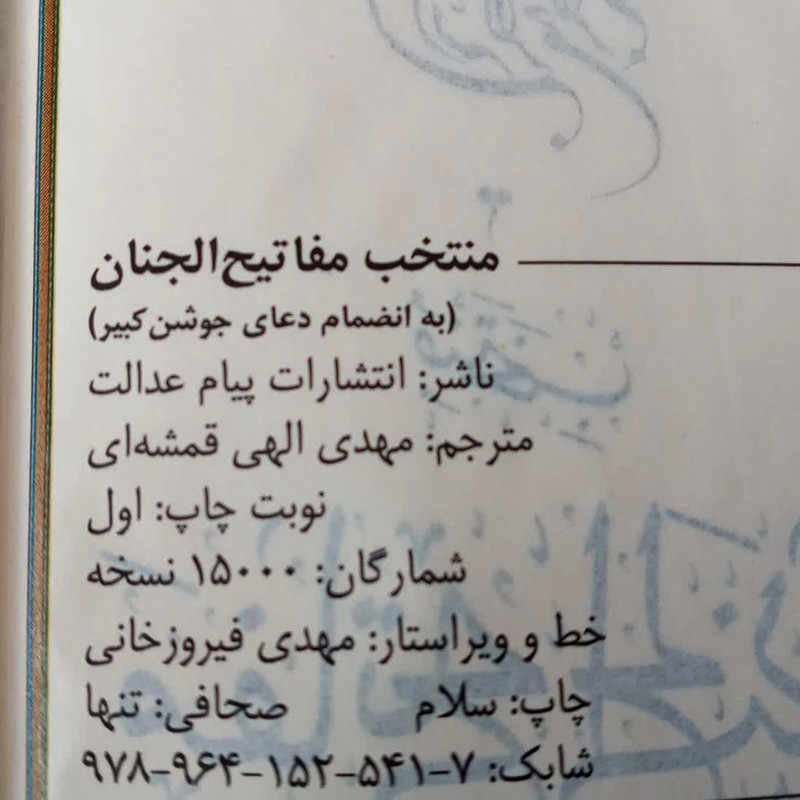 منتخب مفاتیح‌الجنان
(به انضمام دعای جوشن‌کبیر)
ناشر: انتشارات پیام عدالت
مترجم: مهدی الهی قمشه‌ای
نوبت چاپ: اول
شمارگان: ۱۵۰۰۰ نسخه
خط و ویراستار: مهدی فیروزخانی
چاپ: سلام صحافی: تنها
شابک: ۷-۵۴۱-۱۵۲-۹۶۴-۹۷۸